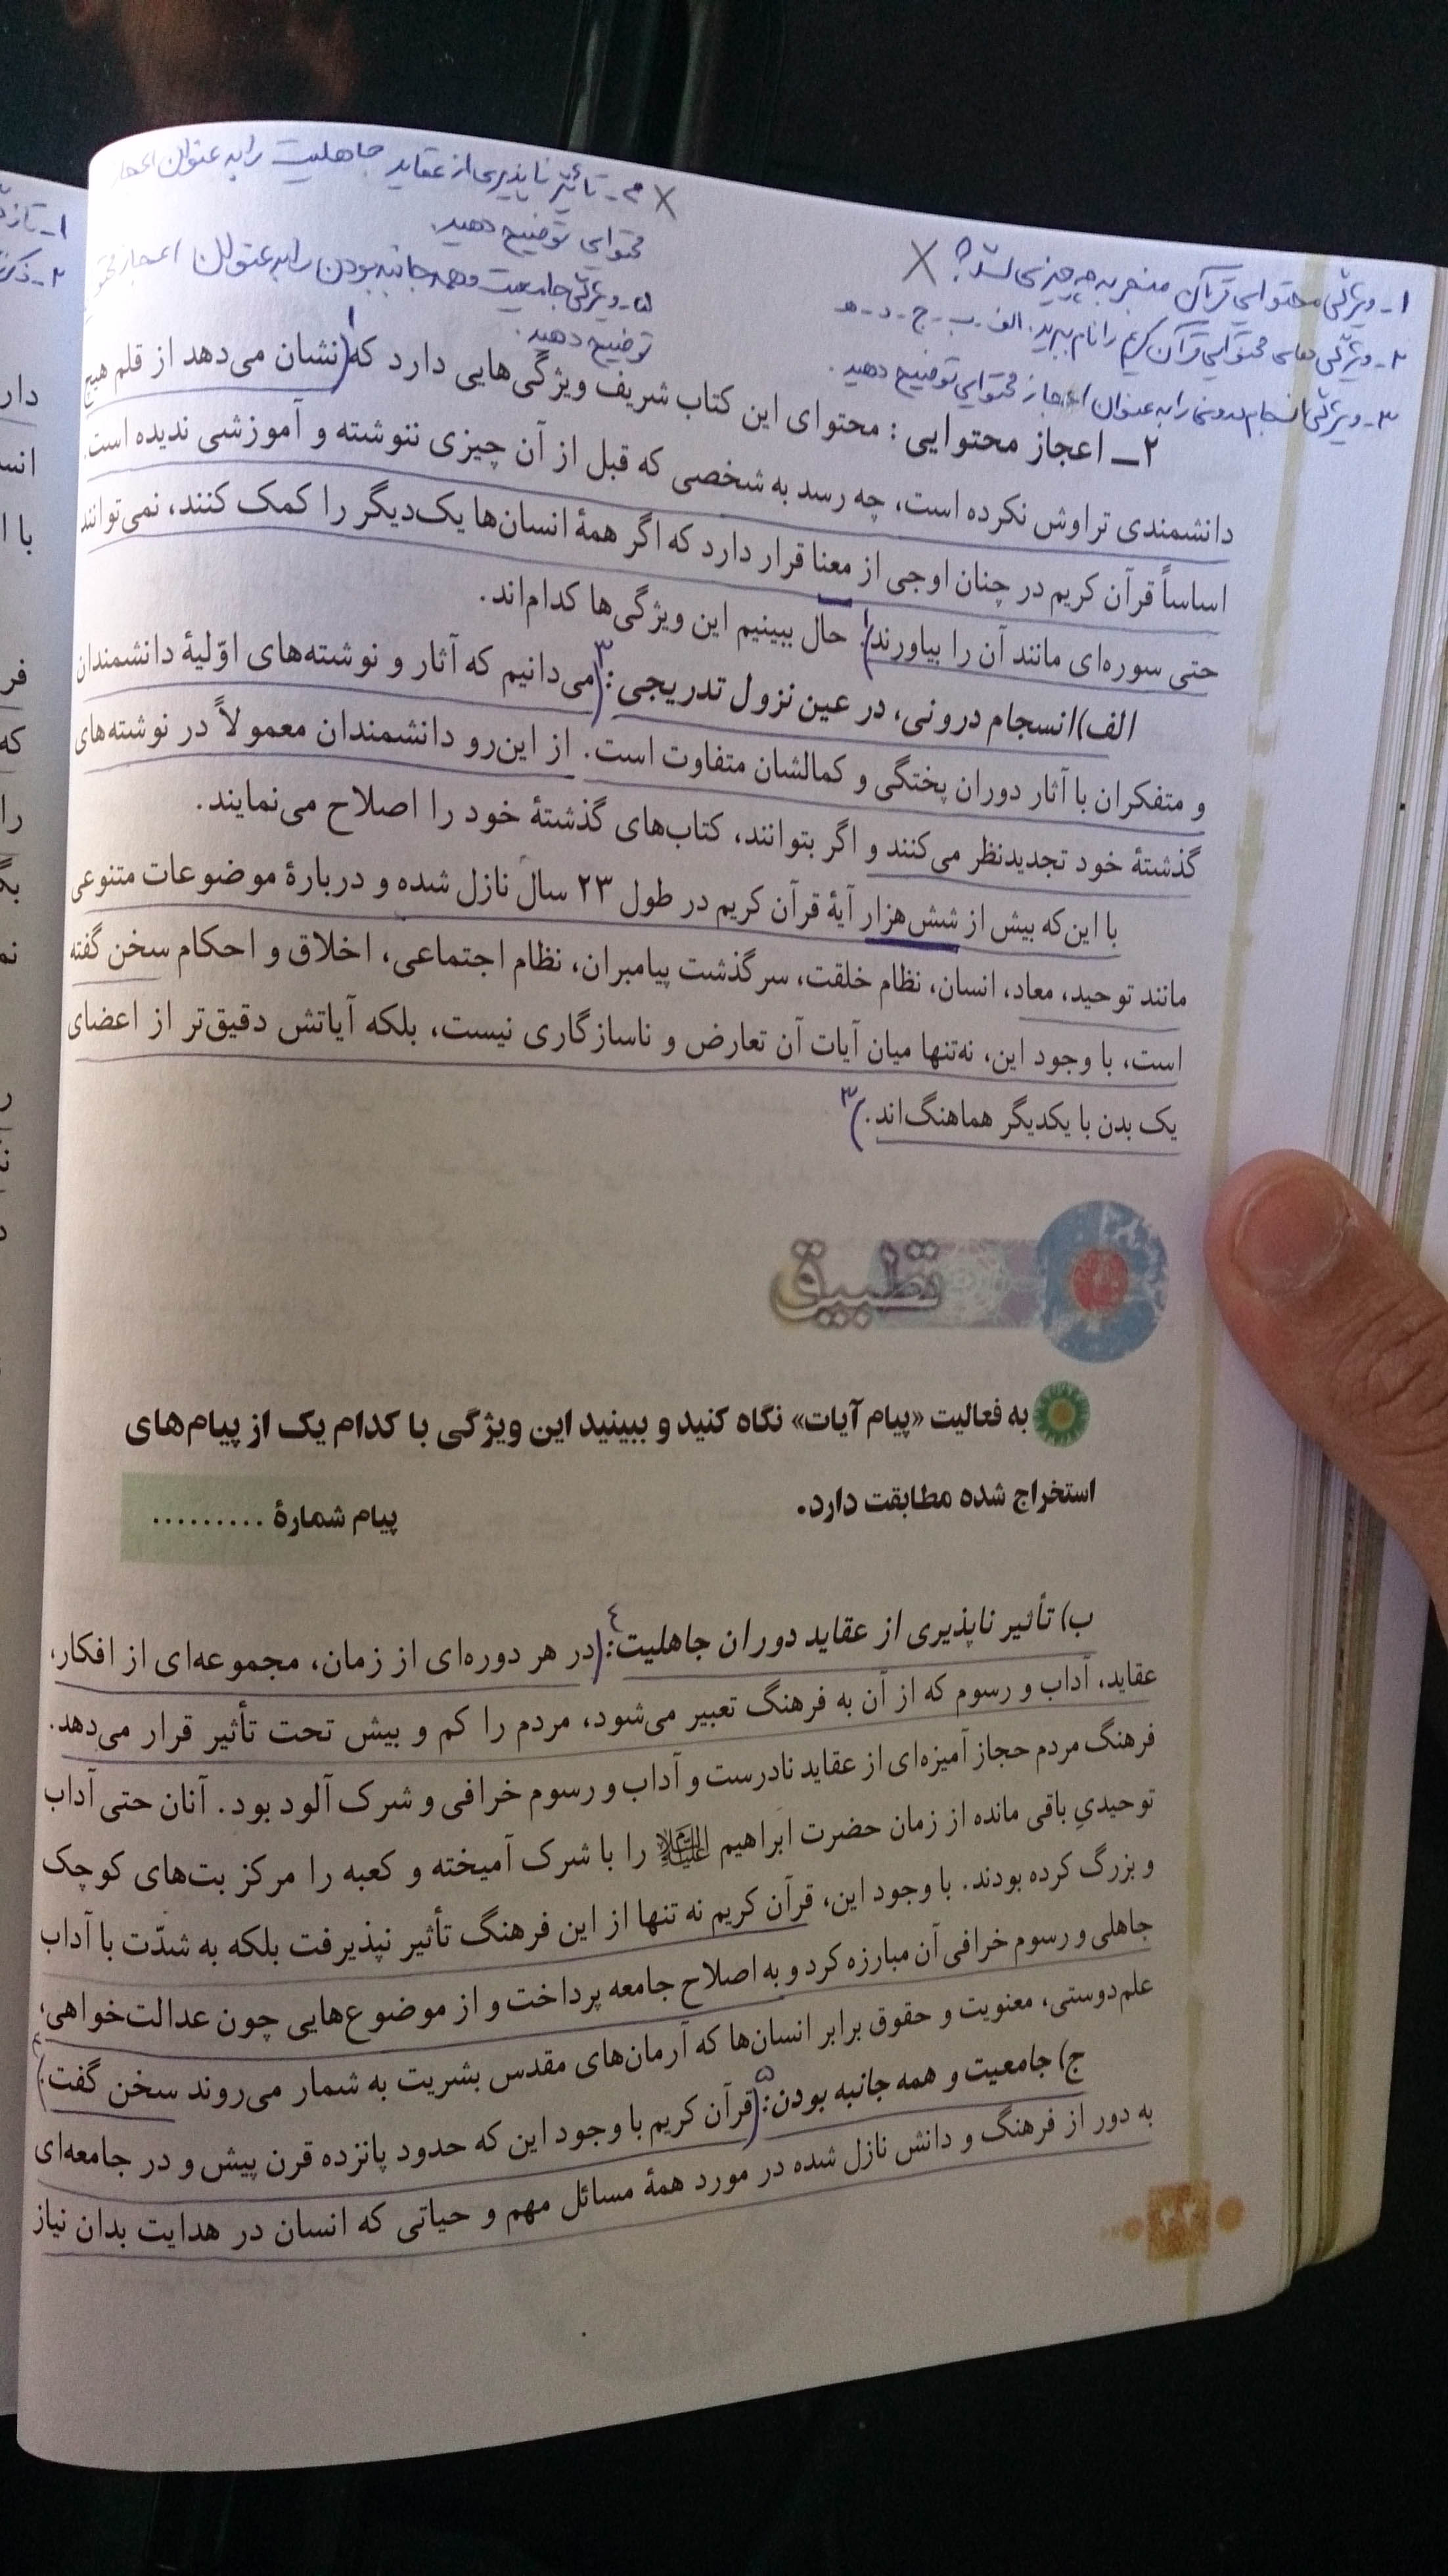 ۱- ویژگی محتوایی قرآن منجر به چه چیزی شد؟ X
۲- ویژگی های محتوایی قرآن کریم را نام ببرید. الف - ب - ج - د - ه
۳- ویژگی انسجام درونی را به عنوان اعجاز محتوایی توضیح دهید.
X ۴- تأثیر ناپذیری از عقاید جاهلیت را به عنوان
محتوایی توضیح دهید.
۵- ویژگی جامعیت و همه جانبه بودن را به عنوان اعجاز
توضیح دهید.
۲ــ اعجاز محتوایی : محتوای این کتاب شریف ویژگی‌هایی دارد که (نشان می‌دهد از قلم هیچ
دانشمندی تراوش نکرده است، چه رسد به شخصی که قبل از آن چیزی ننوشته و آموزشی ندیده است.
اساساً قرآن کریم در چنان اوجی از معنا قرار دارد که اگر همهٔ انسان‌ها یک‌دیگر را کمک کنند، نمی‌توانند
حتی سوره‌ای مانند آن را بیاورند). حال ببینیم این ویژگی‌ها کدام‌اند.
الف) انسجام درونی، در عین نزول تدریجی: (می‌دانیم که آثار و نوشته‌های اوّلیهٔ دانشمندان
و متفکران با آثار دوران پختگی و کمالشان متفاوت است. از این‌رو دانشمندان معمولاً در نوشته‌های
گذشتهٔ خود تجدیدنظر می‌کنند و اگر بتوانند، کتاب‌های گذشتهٔ خود را اصلاح می‌نمایند.
با این‌که بیش از شش‌هزار آیهٔ قرآن کریم در طول ۲۳ سال نازل شده و دربارهٔ موضوعات متنوعی
مانند توحید، معاد، انسان، نظام خلقت، سرگذشت پیامبران، نظام اجتماعی، اخلاق و احکام سخن گفته
است، با وجود این، نه‌تنها میان آیات آن تعارض و ناسازگاری نیست، بلکه آیاتش دقیق‌تر از اعضای
یک بدن با یکدیگر هماهنگ‌اند.) ۳
تطبیق
به فعالیت «پیام آیات» نگاه کنید و ببینید این ویژگی با کدام یک از پیام‌های
استخراج شده مطابقت دارد.
پیام شمارهٔ .........
ب) تأثیر ناپذیری از عقاید دوران جاهلیت: (در هر دوره‌ای از زمان، مجموعه‌ای از افکار،
عقاید، آداب و رسوم که از آن به فرهنگ تعبیر می‌شود، مردم را کم و بیش تحت تأثیر قرار می‌دهد.
فرهنگ مردم حجاز آمیزه‌ای از عقاید نادرست و آداب و رسوم خرافی و شرک آلود بود. آنان حتی آداب
توحیدیِ باقی مانده از زمان حضرت ابراهیم علیه‌السلام را با شرک آمیخته و کعبه را مرکز بت‌های کوچک
و بزرگ کرده بودند. با وجود این، قرآن کریم نه تنها از این فرهنگ تأثیر نپذیرفت بلکه به شدّت با آداب
جاهلی و رسوم خرافی آن مبارزه کرد و به اصلاح جامعه پرداخت و از موضوع‌هایی چون عدالت‌خواهی،
علم‌دوستی، معنویت و حقوق برابر انسان‌ها که آرمان‌های مقدس بشریت به شمار می‌روند سخن گفت.)
ج) جامعیت و همه جانبه بودن: (قرآن کریم با وجود این که حدود پانزده قرن پیش و در جامعه‌ای
به دور از فرهنگ و دانش نازل شده در مورد همهٔ مسائل مهم و حیاتی که انسان در هدایت بدان نیاز